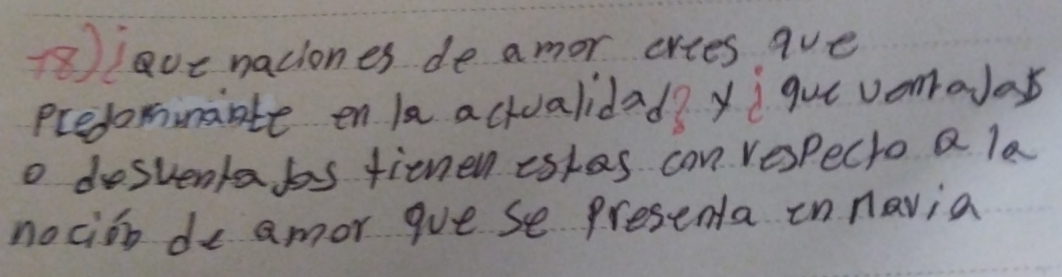 18)¿que naciones de amor crees que
predominante en la actualidad? y ¿que ventajas
o desventajas tienen estas con respecto a la
noción de amor que se presenta en María